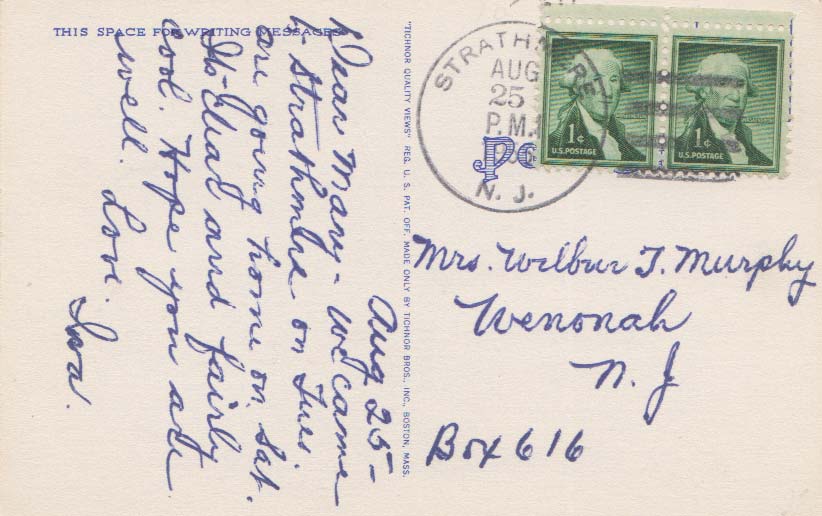 THIS SPACE FOR WRITING MESSAGES
Aug 25-
Dear Mary - We came
to Strathmere on Tues.
are going home on Sat.
It's clear and fairly
cool. Hope you are
well. Love.
"TICHNOR QUALITY VIEWS" REG. U. S. PAT. OFF. MADE ONLY BY TICHNOR BROS., INC., BOSTON, MASS.
STRATHMERE
AUG
25
P.M.
N. J.
1¢
U.S. POSTAGE
1¢
U.S. POSTAGE
Mrs. Wilbur T. Murphy
Wenonah
N. J.
Box 616